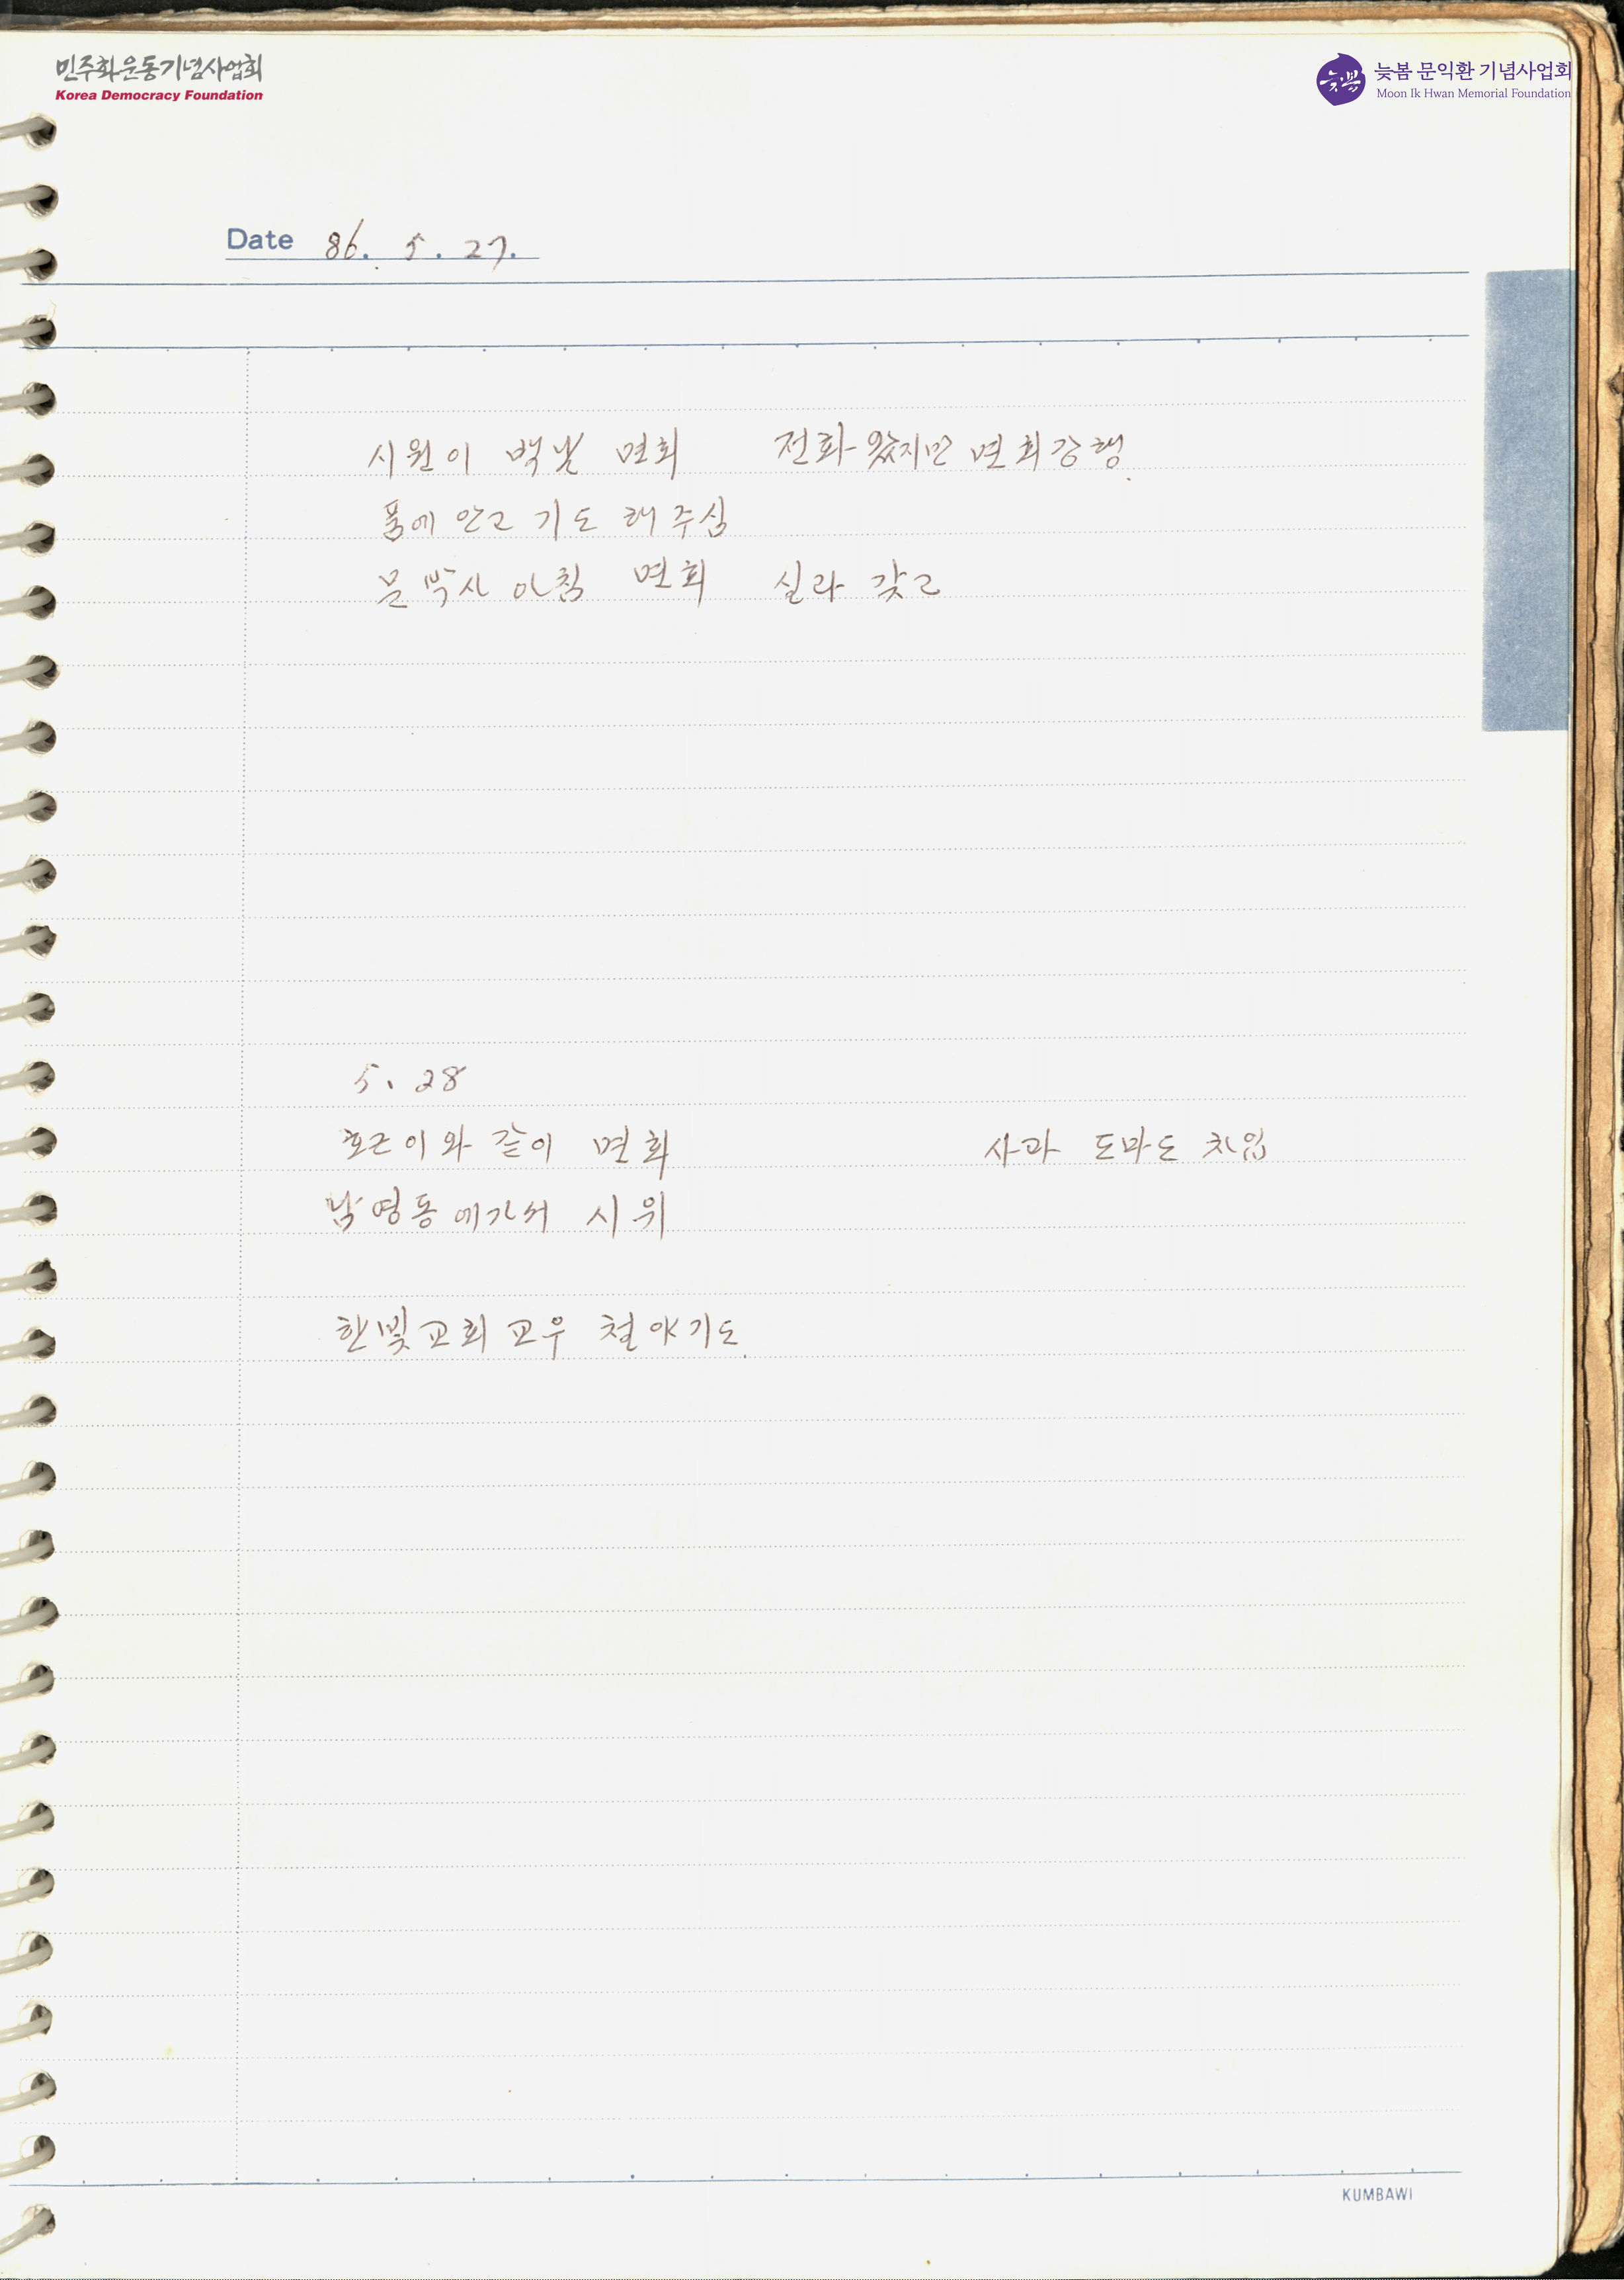 민주화운동기념사업회
Korea Democracy Foundation
늦봄 문익환 기념사업회
Moon Ik Hwan Memorial Foundation
Date 86. 5. 27.
시원이 백날 면회 전화왔지만 면회강행.
품에 안고 기도 해 주심
문박사 아침 면회 실과 갖고
5. 28
호근이와 같이 면회 사과 도마도 차입
남영동에가서 시위
한빛교회 교우 철야기도.
KUMBAWI